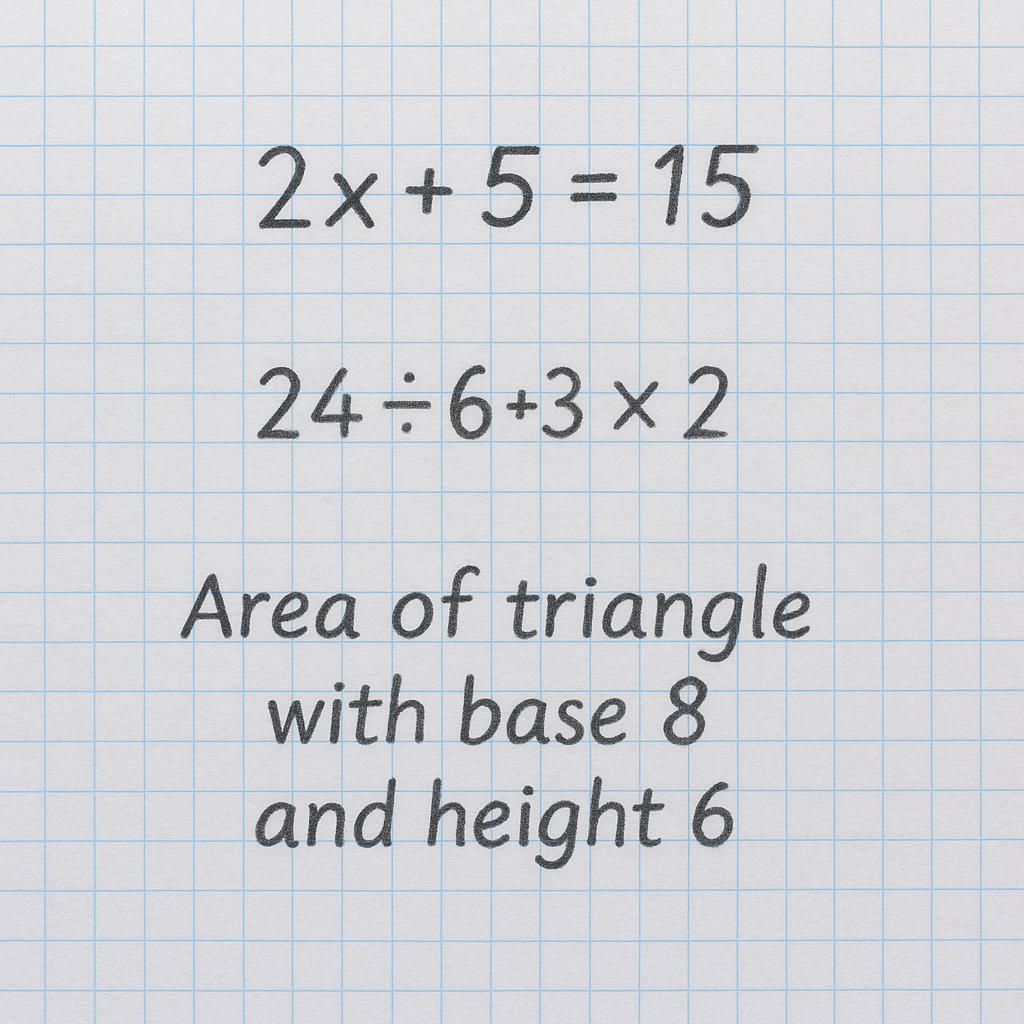 2x + 5 = 15
24 ÷ 6 + 3 × 2
Area of triangle
with base 8
and height 6